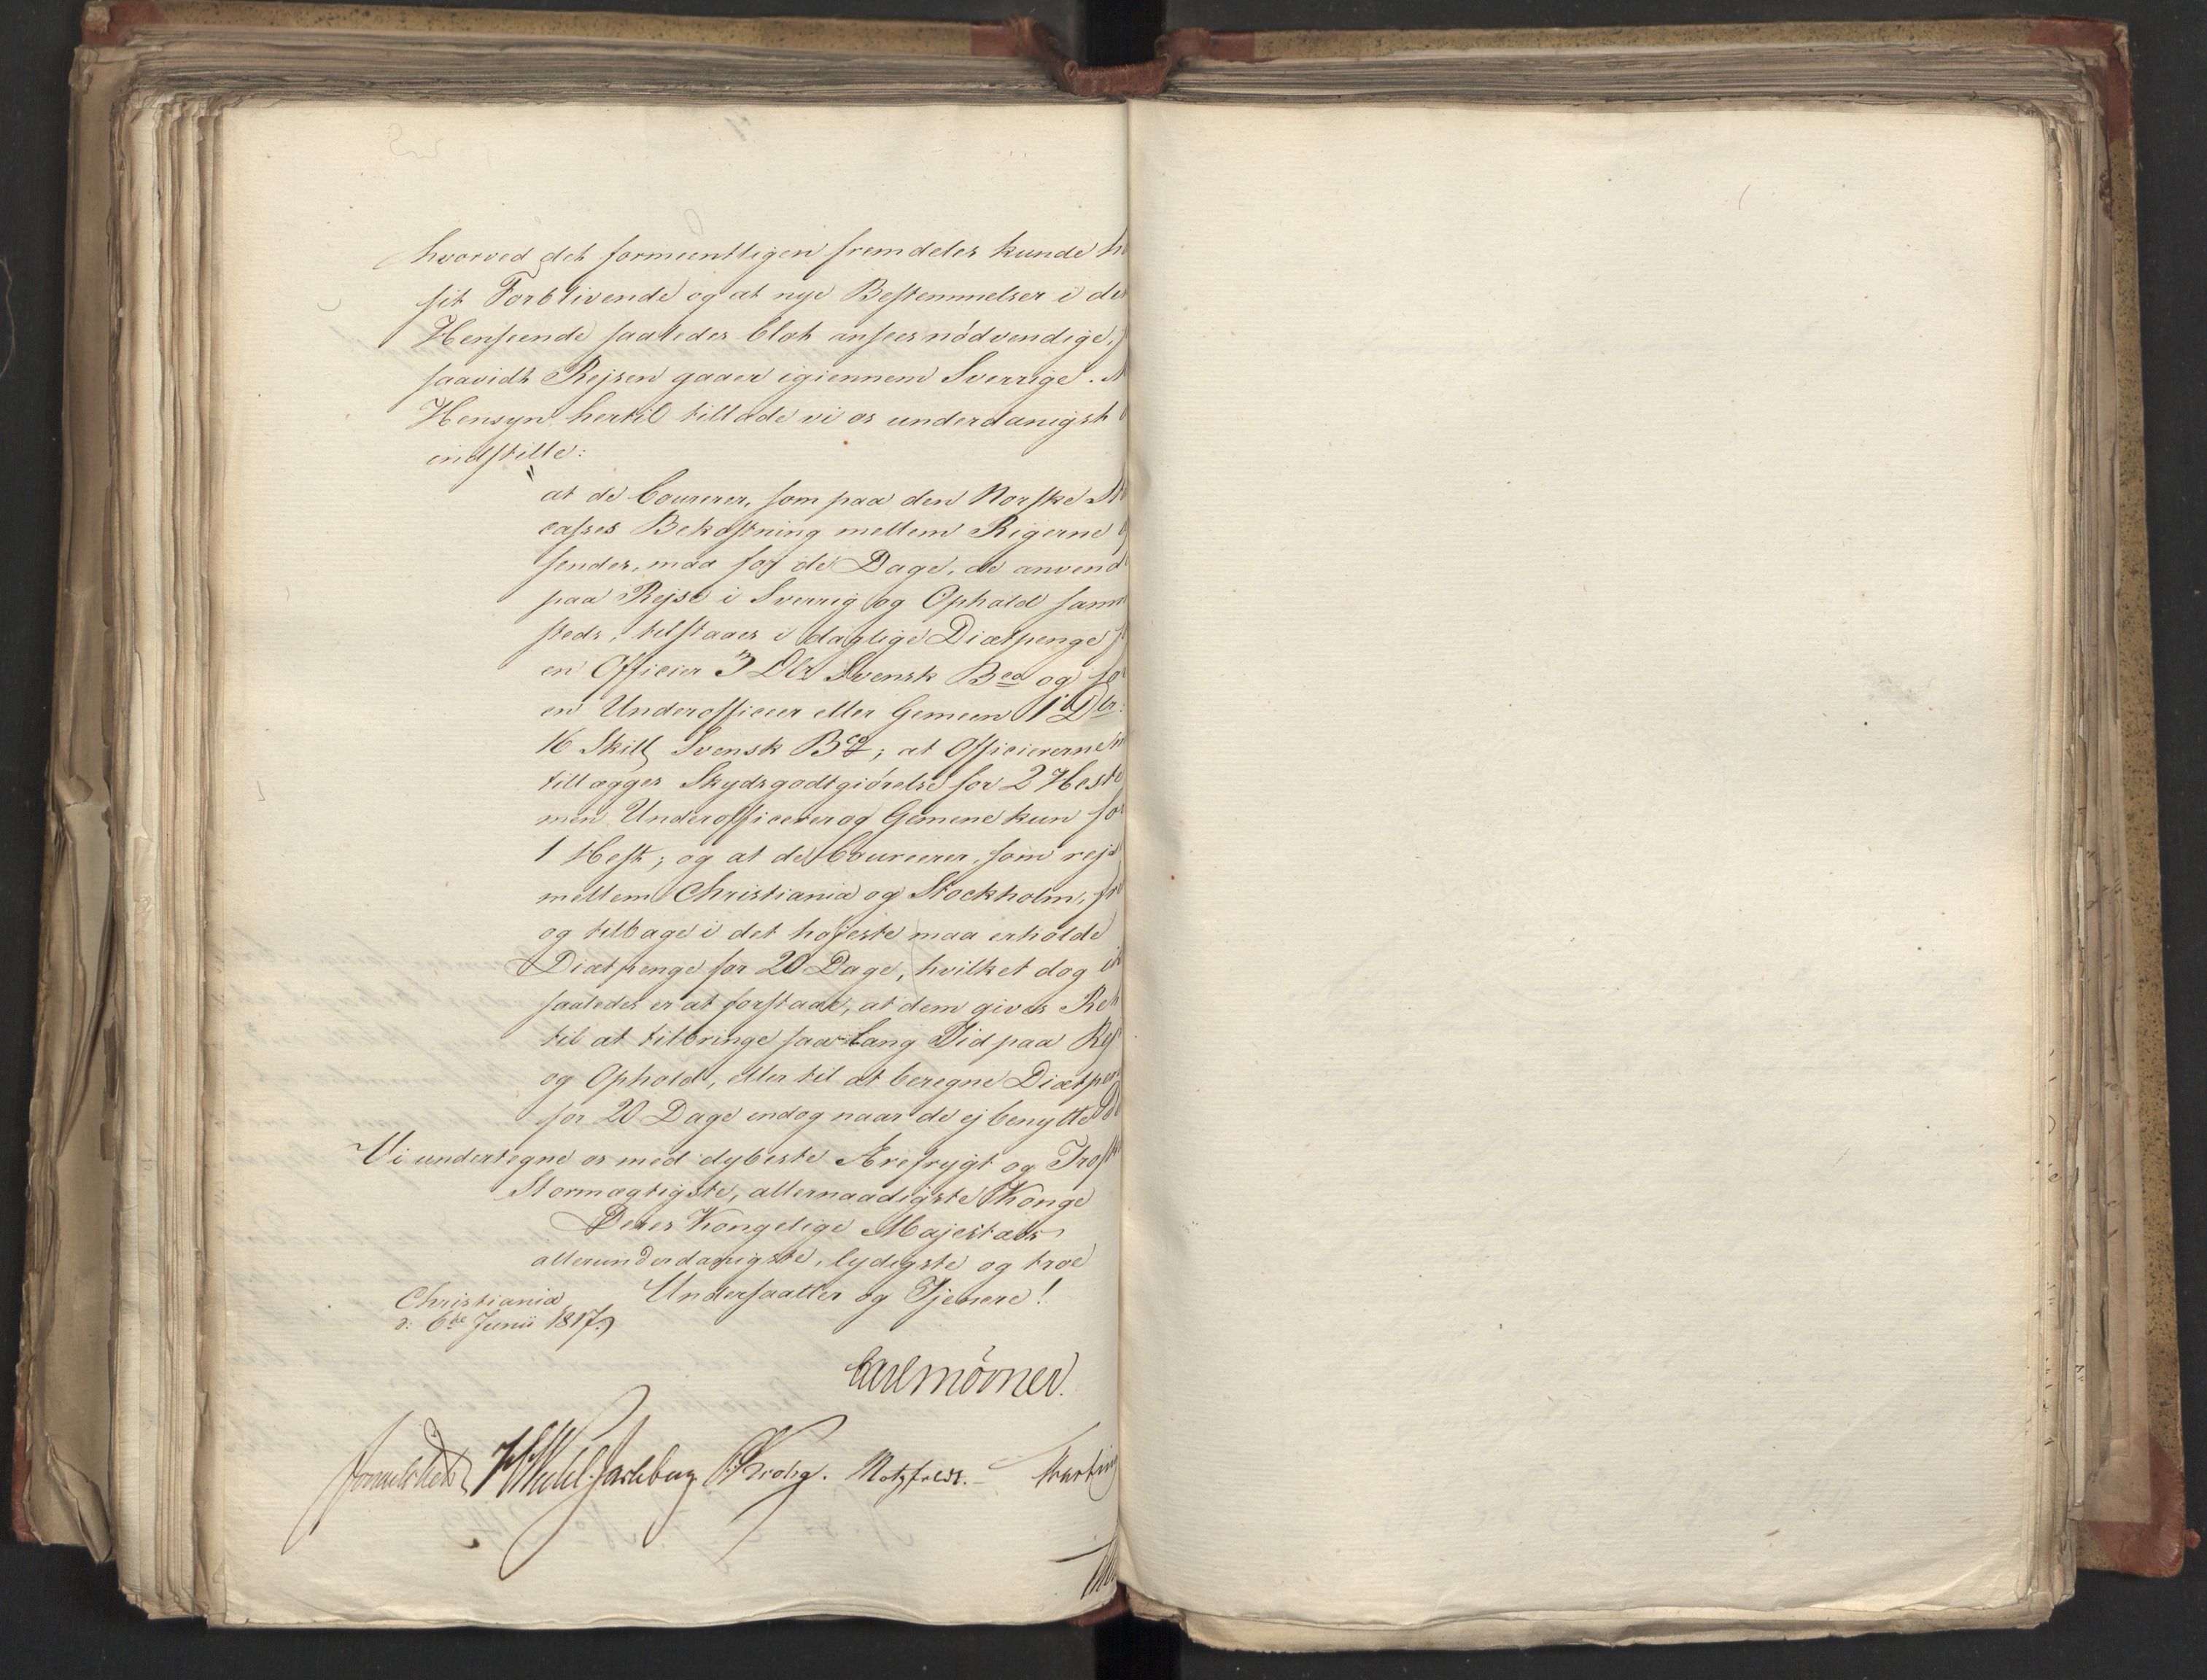 hvorved det formeentligen fremdeles kunde
sit Forblivende og at nye Bestemmelser i
Henseende saaledes blot ansees nødvendige,
saavidt Rejsen gaaer igiennem Sverrige.
Hensyn hertil tillade vi os underdanigst
indstille:
at de Courerer, som paa den Norske
casses Bekostning mellem Rigerne
sendes, maa for de Dage, de anvend
paa Rejse i Sverrig og Ophold sam
steds, tilstaaes i daglige Diætpenge
en Officier 3 Dlr Svensk Bco og for
en Underofficeer eller Gemeen 1 Dlr:
16 Skill Svensk Bco; at Officiererne
tillægges Skydsgodtgiørelse for 2 Heste
men Underofficerer og Gemene kun for
1 Hest; og at de Courerer, som rejs
mellem Christiania og Stockholm,
og tilbage i det højeste maa erholde
Diætpenge for 20 Dage, hvilket dog
saaledes er at forstaae, at dem gives Ret
til at tilbringe saa lang Tid paa Rejs
og Ophold, eller til at beregne Diætpen
for 20 Dage endog naar de ej benytte
Vi undertegne os med dybeste Ærefrygt og
Stormægtigste, allernaadigste Konge
Deres Kongelige Majestæts
allerunderdanigste, lydigste og troe
Undersaatter og Tjenere!
Christiania
d: 6te Junii 1817.
Carl Mörner.
Sommerhielm Wedel Jarlsberg Krohg. Motzfeldt.